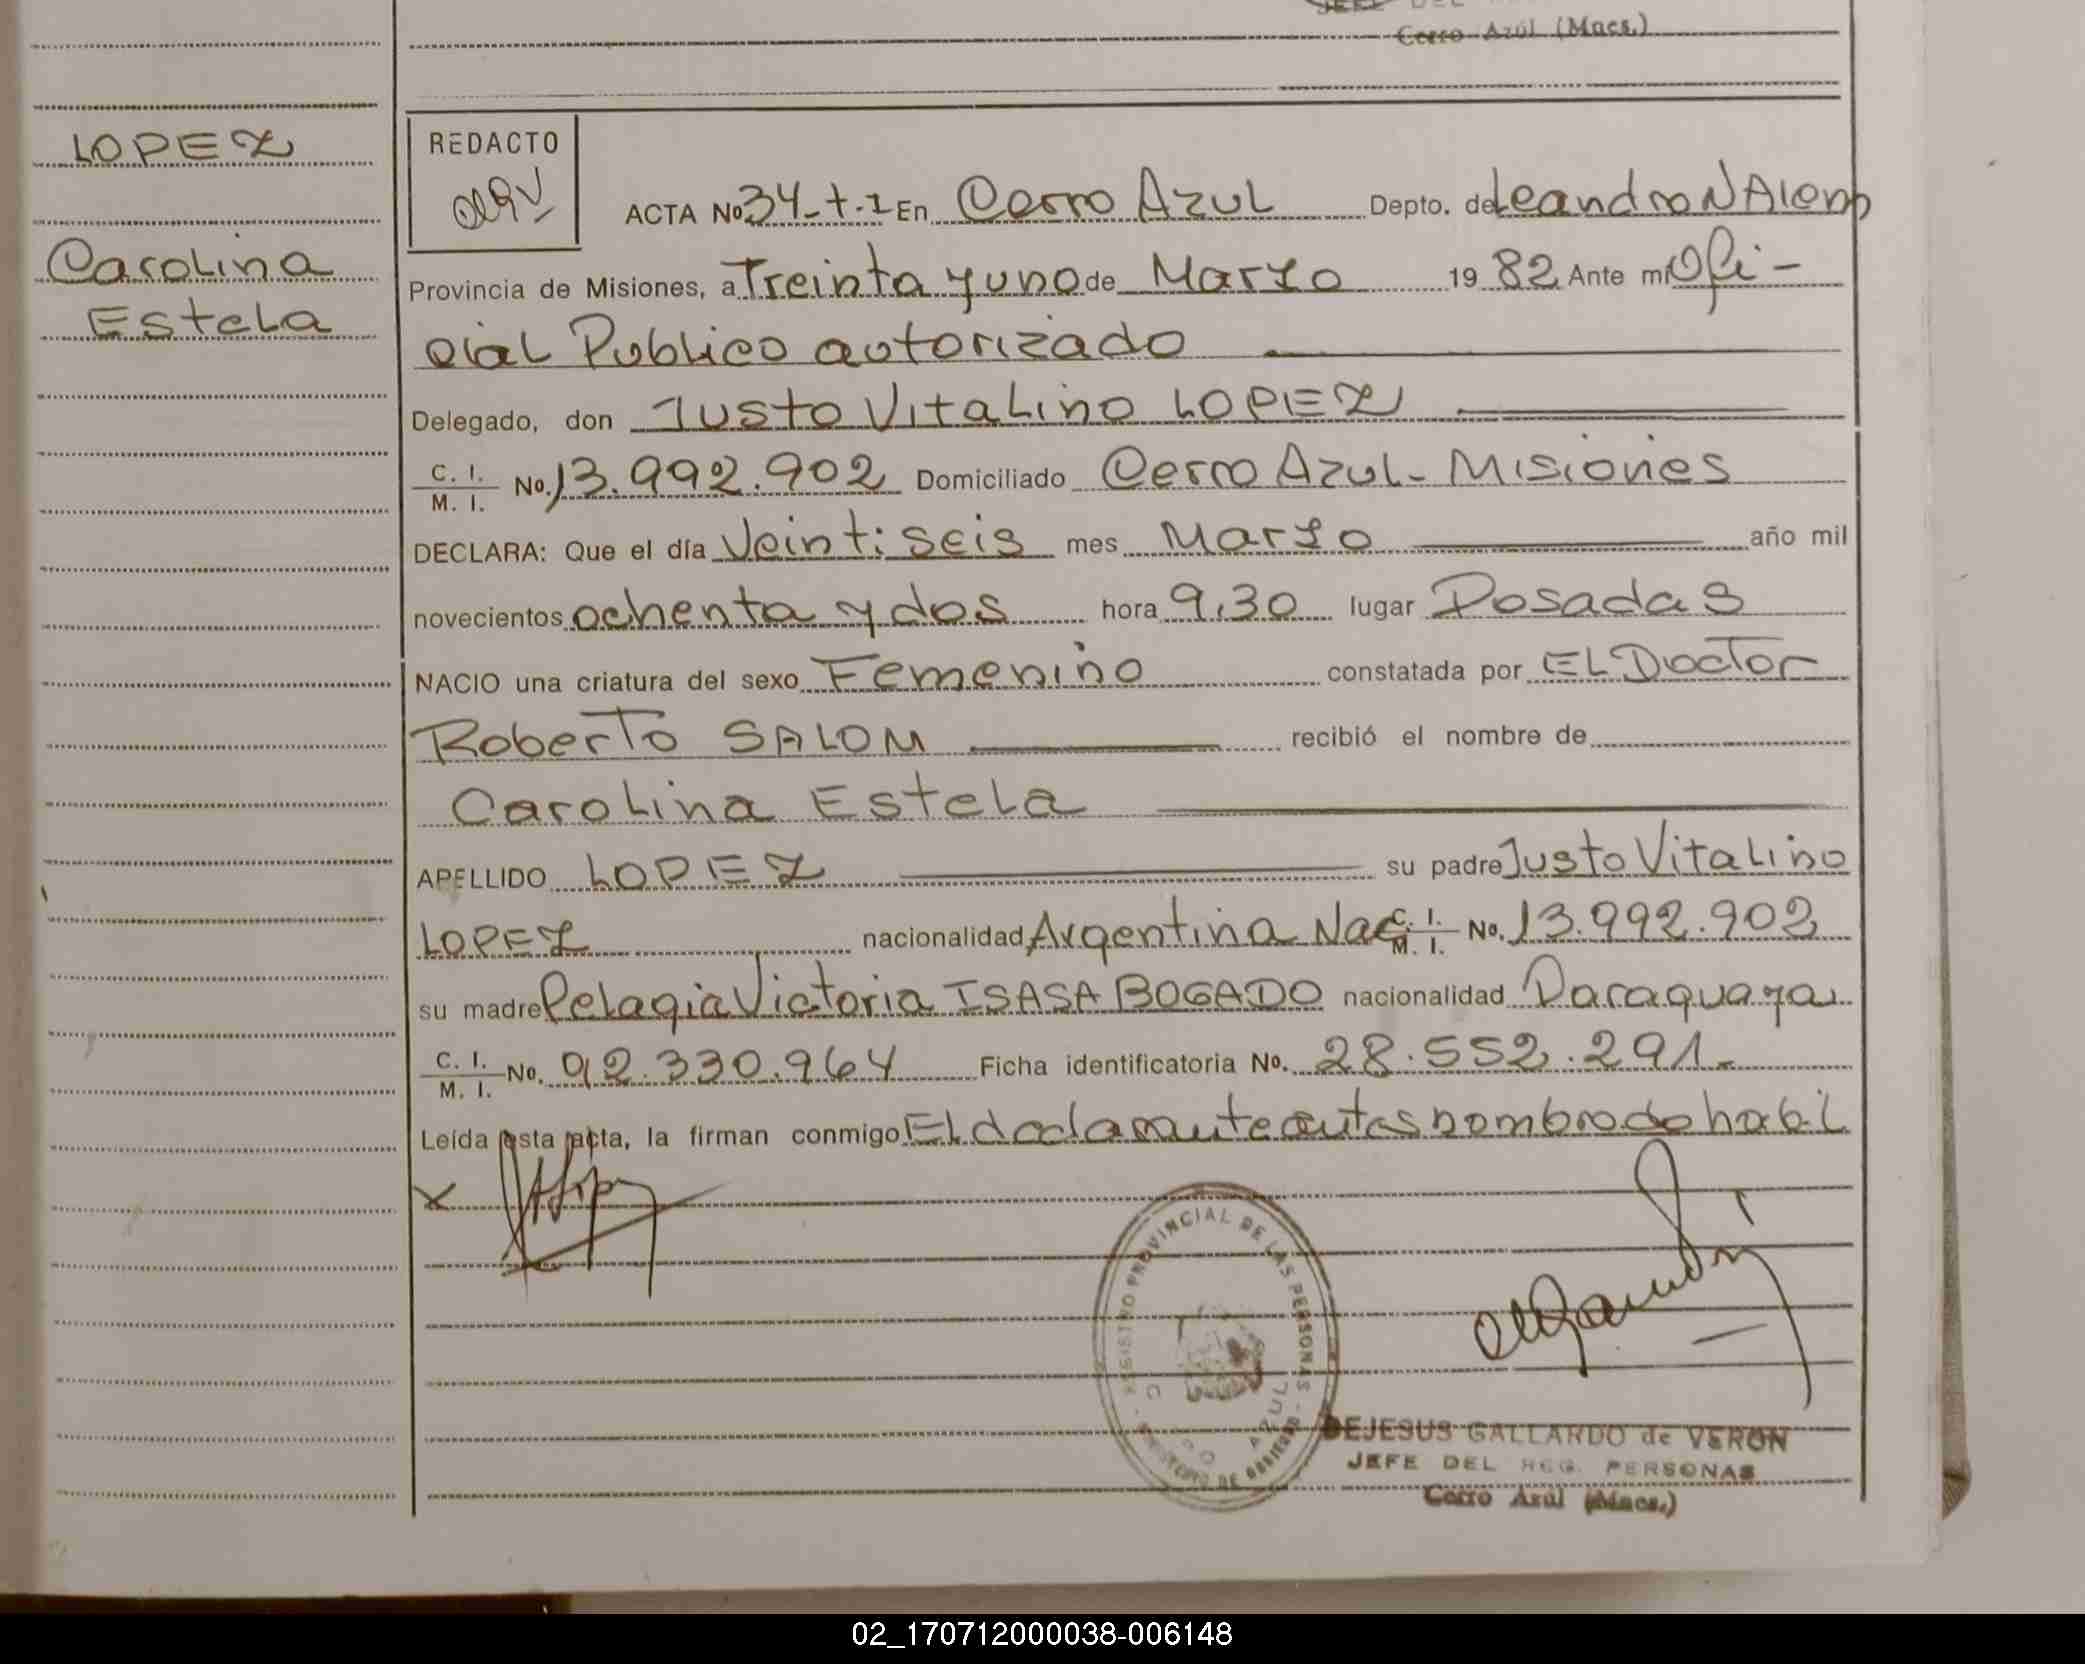 Cerro Azúl (Mnes.)
LOPEZ
Carolina
Estela
REDACTO
ACTA No 34-t-1 En Cerro Azul Depto. de Leandro N Alem
Provincia de Misiones, a Treinta y uno de Marzo 19 82 Ante mi Ofi-
cial Publico autorizado
Delegado, don Justo Vitalino LOPEZ
C. I. / M. I. No. 13.992.902 Domiciliado Cerro Azul - Misiones
DECLARA: Que el día Veintiseis mes Marzo año mil
novecientos ochenta y dos hora 9,30 lugar Posadas
NACIO una criatura del sexo Femenino constatada por EL Doctor
Roberto SALOM recibió el nombre de
Carolina Estela
APELLIDO LOPEZ su padre Justo Vitalino
LOPEZ nacionalidad Argentina Nac C. I. / M. I. No. 13.992.902
su madre Pelagia Victoria ISASA BOGADO nacionalidad Paraguaya
C. I. / M. I. No. 92.330.964 Ficha identificatoria No. 28.552.291.-
Leída esta acta, la firman conmigo El declarante antes nombrado habil
REGISTRO PROVINCIAL DE LAS PERSONAS - MINISTERIO DE GOBIERNO
AZUL
DEJESUS GALLARDO de VERON
JEFE DEL REG. PERSONAS
Cerro Azúl (Mnes.)
02_170712000038-006148